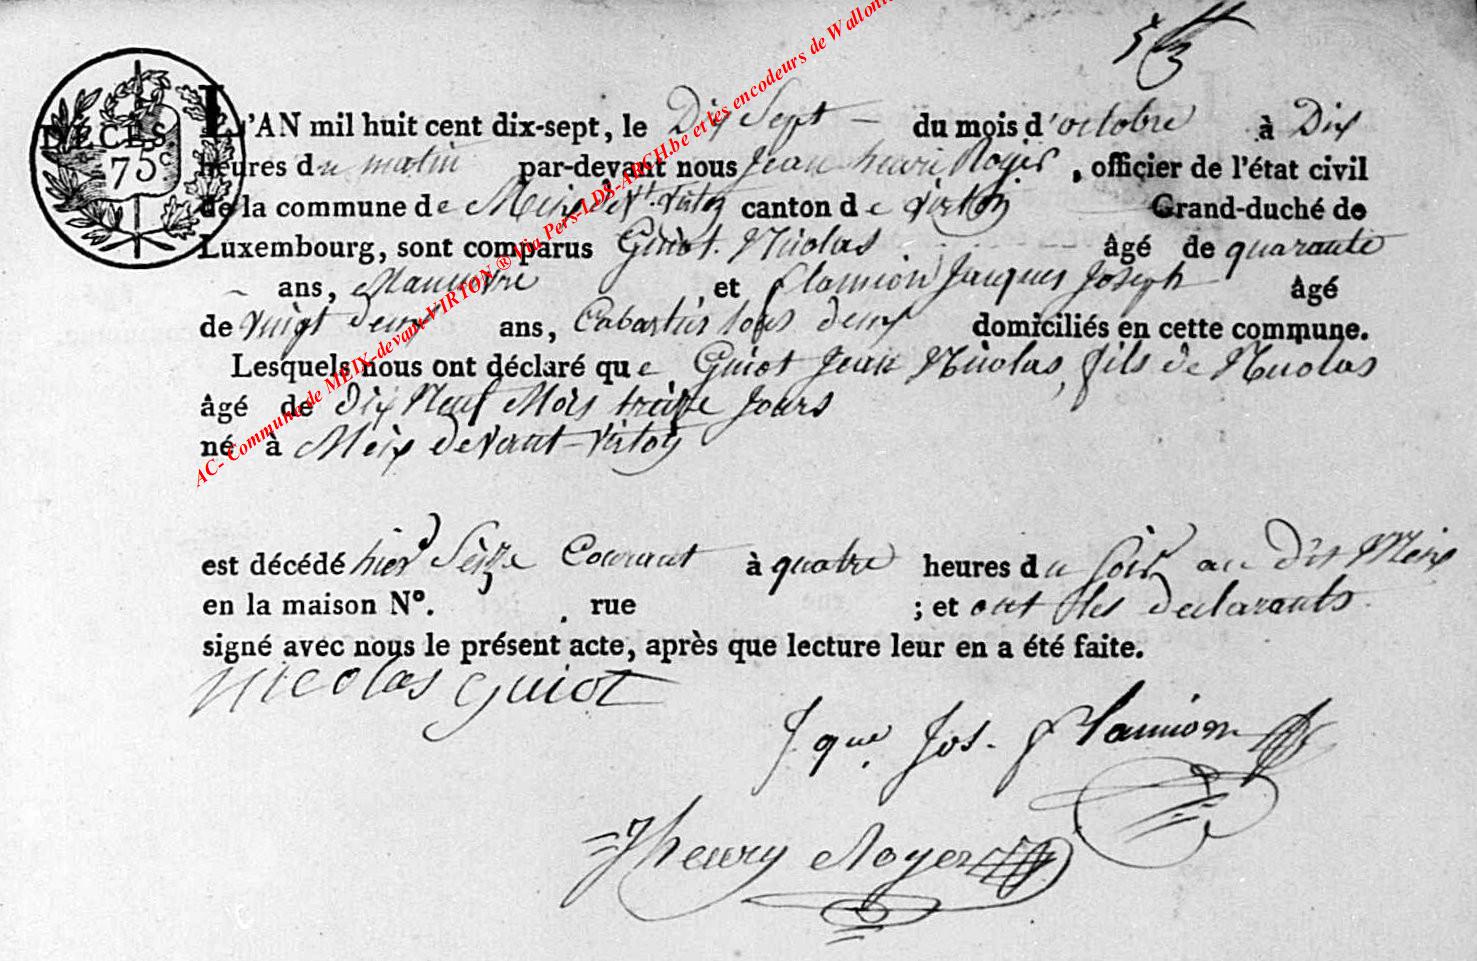 DÉCÈS
75c
L'AN mil huit cent dix-sept, le Dix Sept du mois d'octobre à Dix
heures du matin par-devant nous Jean henri Royer, officier de l'état civil
de la commune de Meix devt. Virton canton de Virton Grand-duché de
Luxembourg, sont comparus Guiot Nicolas âgé de quarante
ans, Manuvre et flamion Jacques Joseph âgé
de vingt deux ans, Cabartier tous deux domiciliés en cette commune.
Lesquels nous ont déclaré que Guiot Jean Nicolas, fils de Nicolas
âgé de dix Neuf Mois treize Jours
né à Meix devant-Virton
est décédé hier Seize Courant à quatre heures du Soir au dit Meix
en la maison N°. , rue ; et ont les declarants
signé avec nous le présent acte, après que lecture leur en a été faite.
Nicolas Guiot
Jque Jos. flamion
Jhenry Royer
AC- Commune de MEIX-devant-VIRTON ® Via Pers-LDS-ARCH.be et les encodeurs de Wallonie